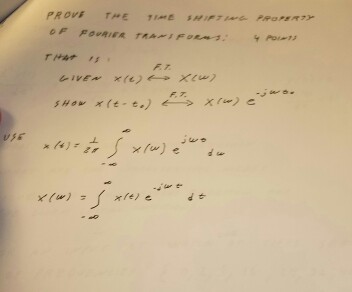 PROVE THE TIME SHIFTING PROPERTY
OF FOURIER TRANSFORMS: 4 POINTS
THAT IS:
GIVEN x(t) F.T. ⟷ X(w)
SHOW x(t-t₀) F.T. ⟷ X(w) e^-jwt₀
USE x(t) = 1/2π ∫_-∞^∞ X(w) e^jwt dw
X(w) = ∫_-∞^∞ x(t) e^-jwt dt